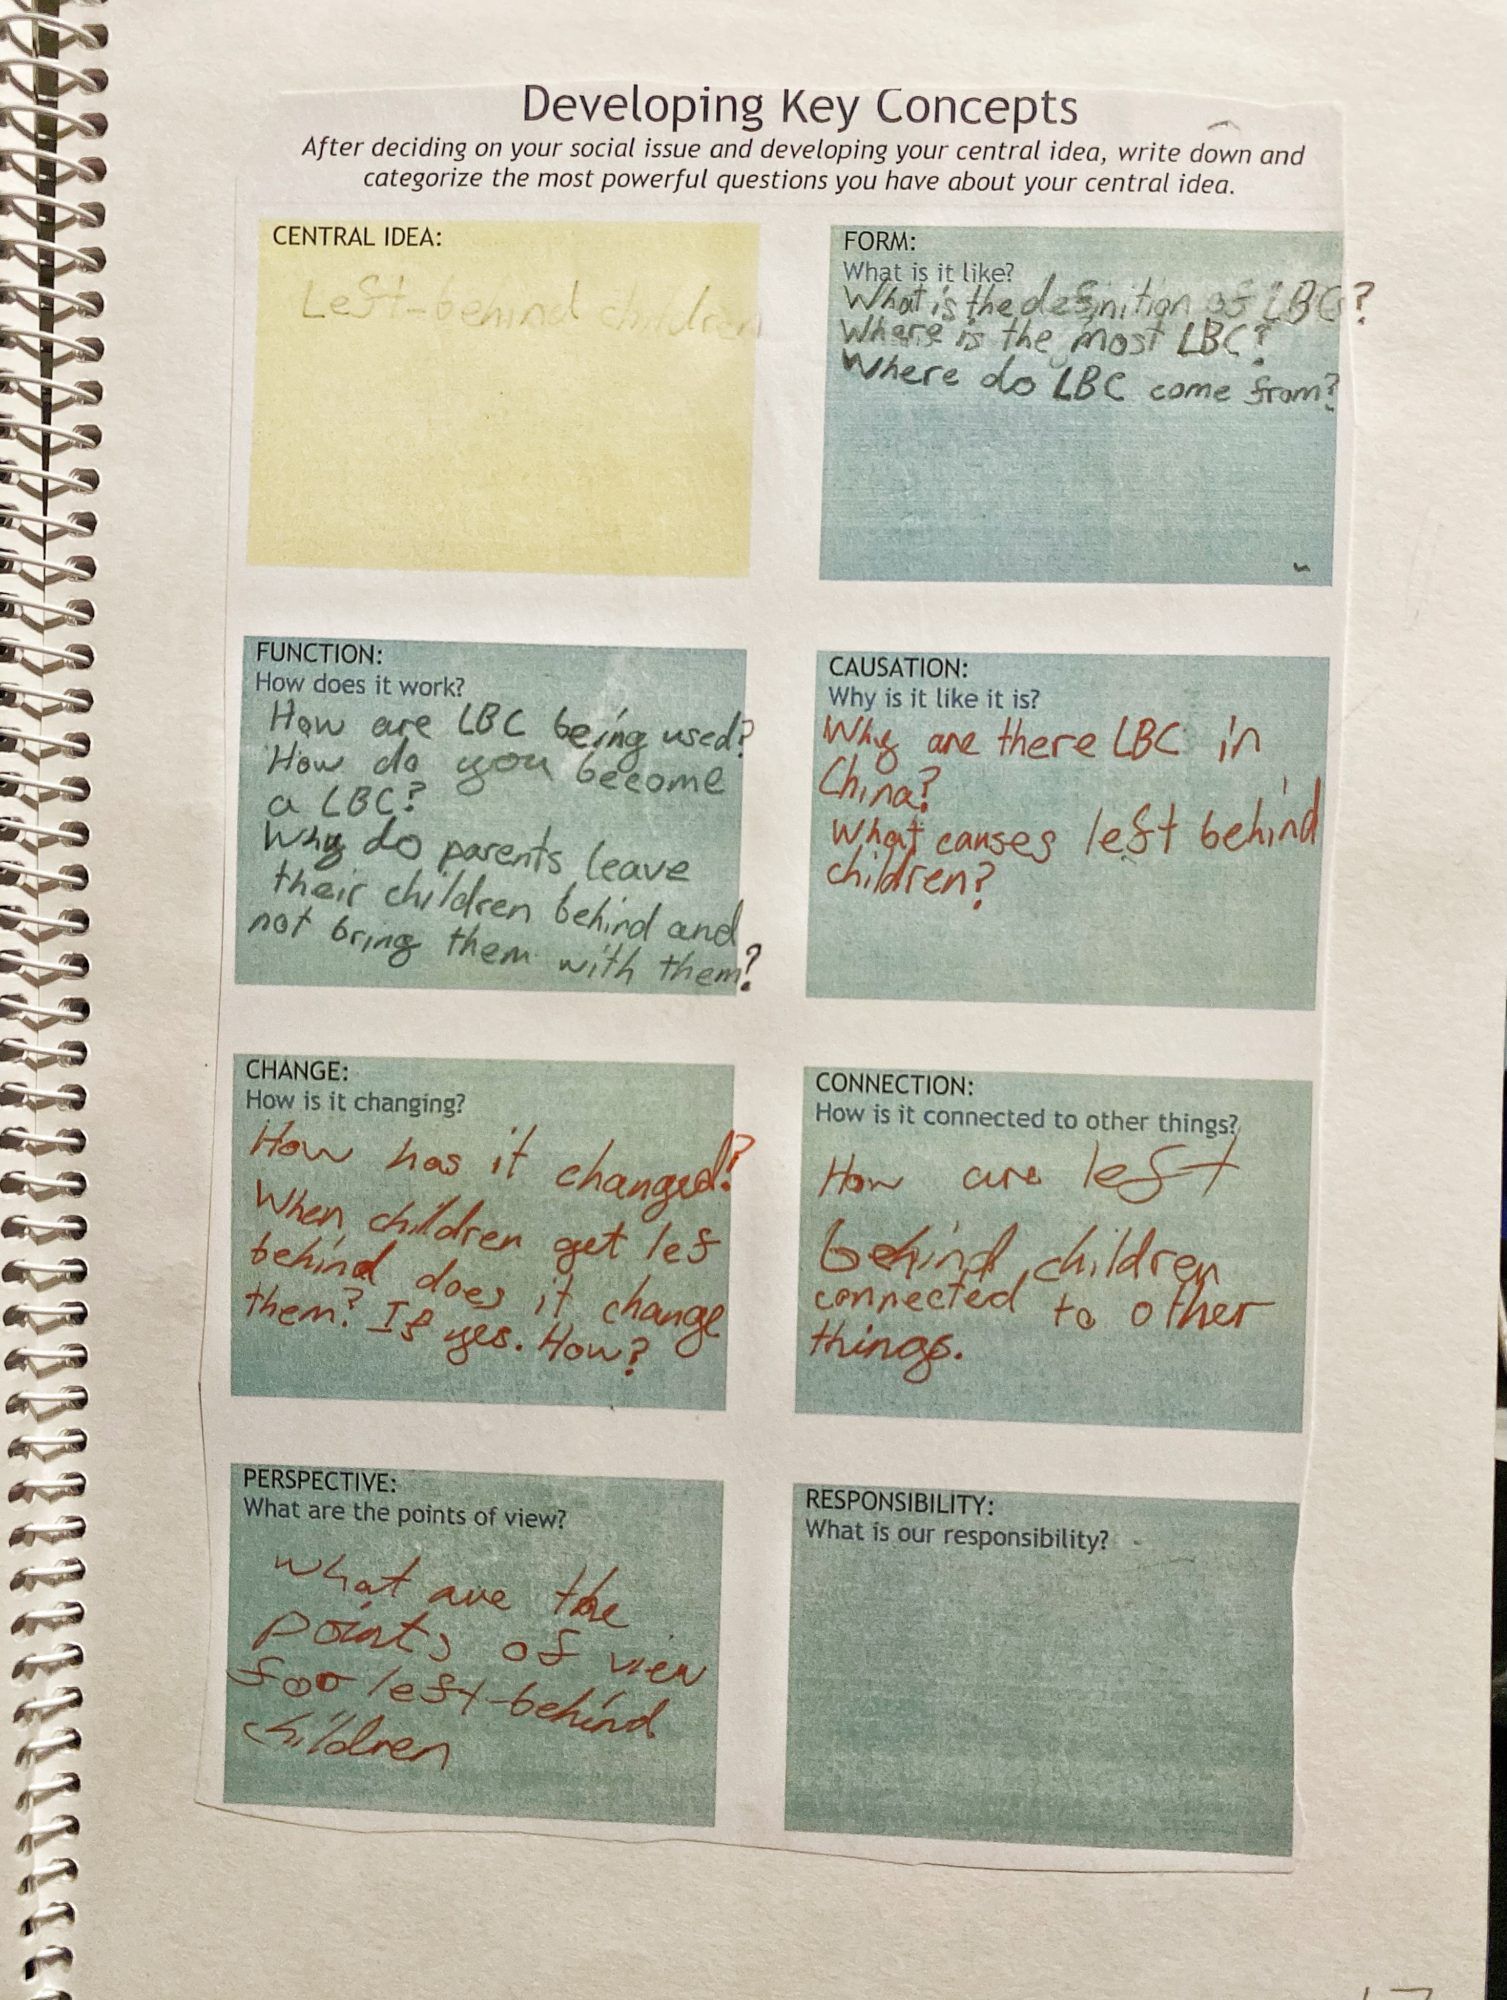 Developing Key Concepts
After deciding on your social issue and developing your central idea, write down and
categorize the most powerful questions you have about your central idea.
CENTRAL IDEA:
Left-behind children
FORM:
What is it like?
What is the definition of LBC?
Where is the most LBC?
Where do LBC come from?
FUNCTION:
How does it work?
How are LBC being used?
How do you become
a LBC?
Why do parents leave
their children behind and
not bring them with them?
CAUSATION:
Why is it like it is?
Why are there LBC in
China?
What causes left behind
children?
CHANGE:
How is it changing?
How has it changed?
When children get lef
behind does it change
them? If yes. How?
CONNECTION:
How is it connected to other things?
How are left
behind children
connected to other
things.
PERSPECTIVE:
What are the points of view?
What are the
points of view
for left-behind
children
RESPONSIBILITY:
What is our responsibility?